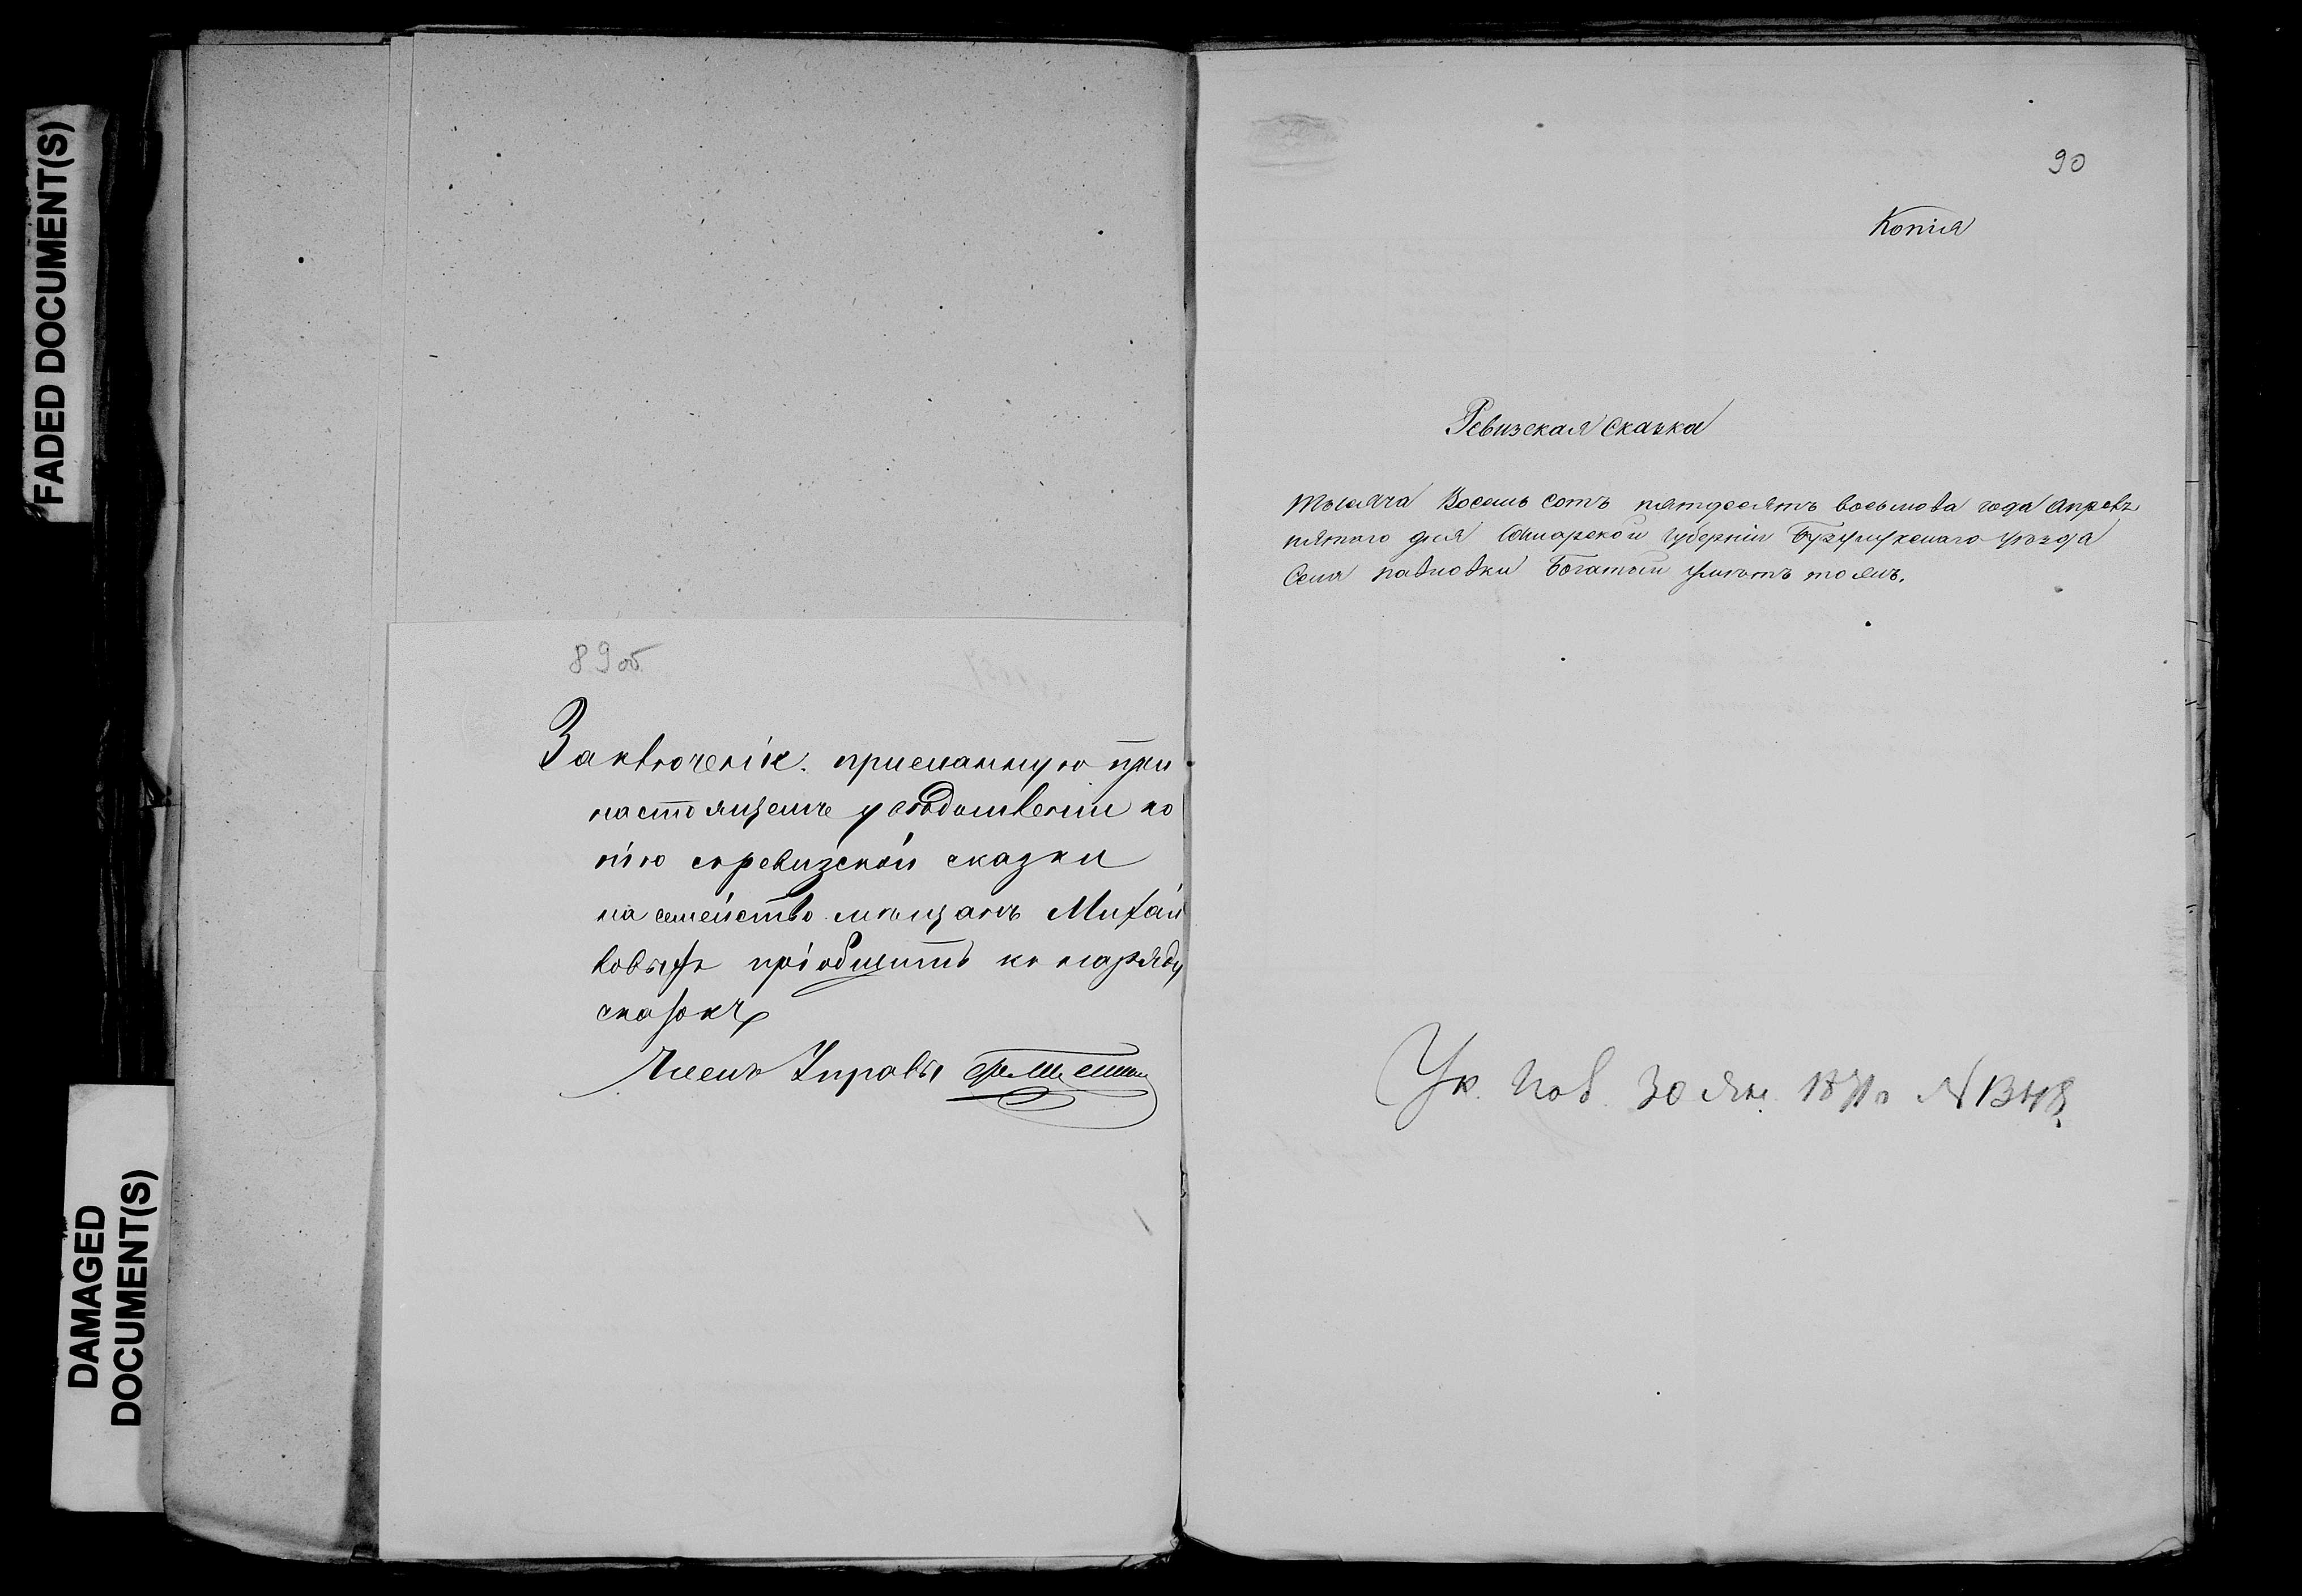 FADED DOCUMENT(S)
DAMAGED
DOCUMENT(S)
89об
Заключенiе. присланную при
настоящеме уведомленiи ко
пiю съ ревизской сказки
на семейство мещанъ Михай
ловыхъ прiобщить къ наряду
сказокъ
Членъ Управы
90
Копiя
Ревизская сказка
Тысяча Восемь сотъ пятдесятъ восьмова года Апреля
пятого дня Самарской губернiи Бузулукскаго уезда
Села Павловки Богатый Умётъ тожъ.
Ук. 30 Янв. 1871 г №1348.